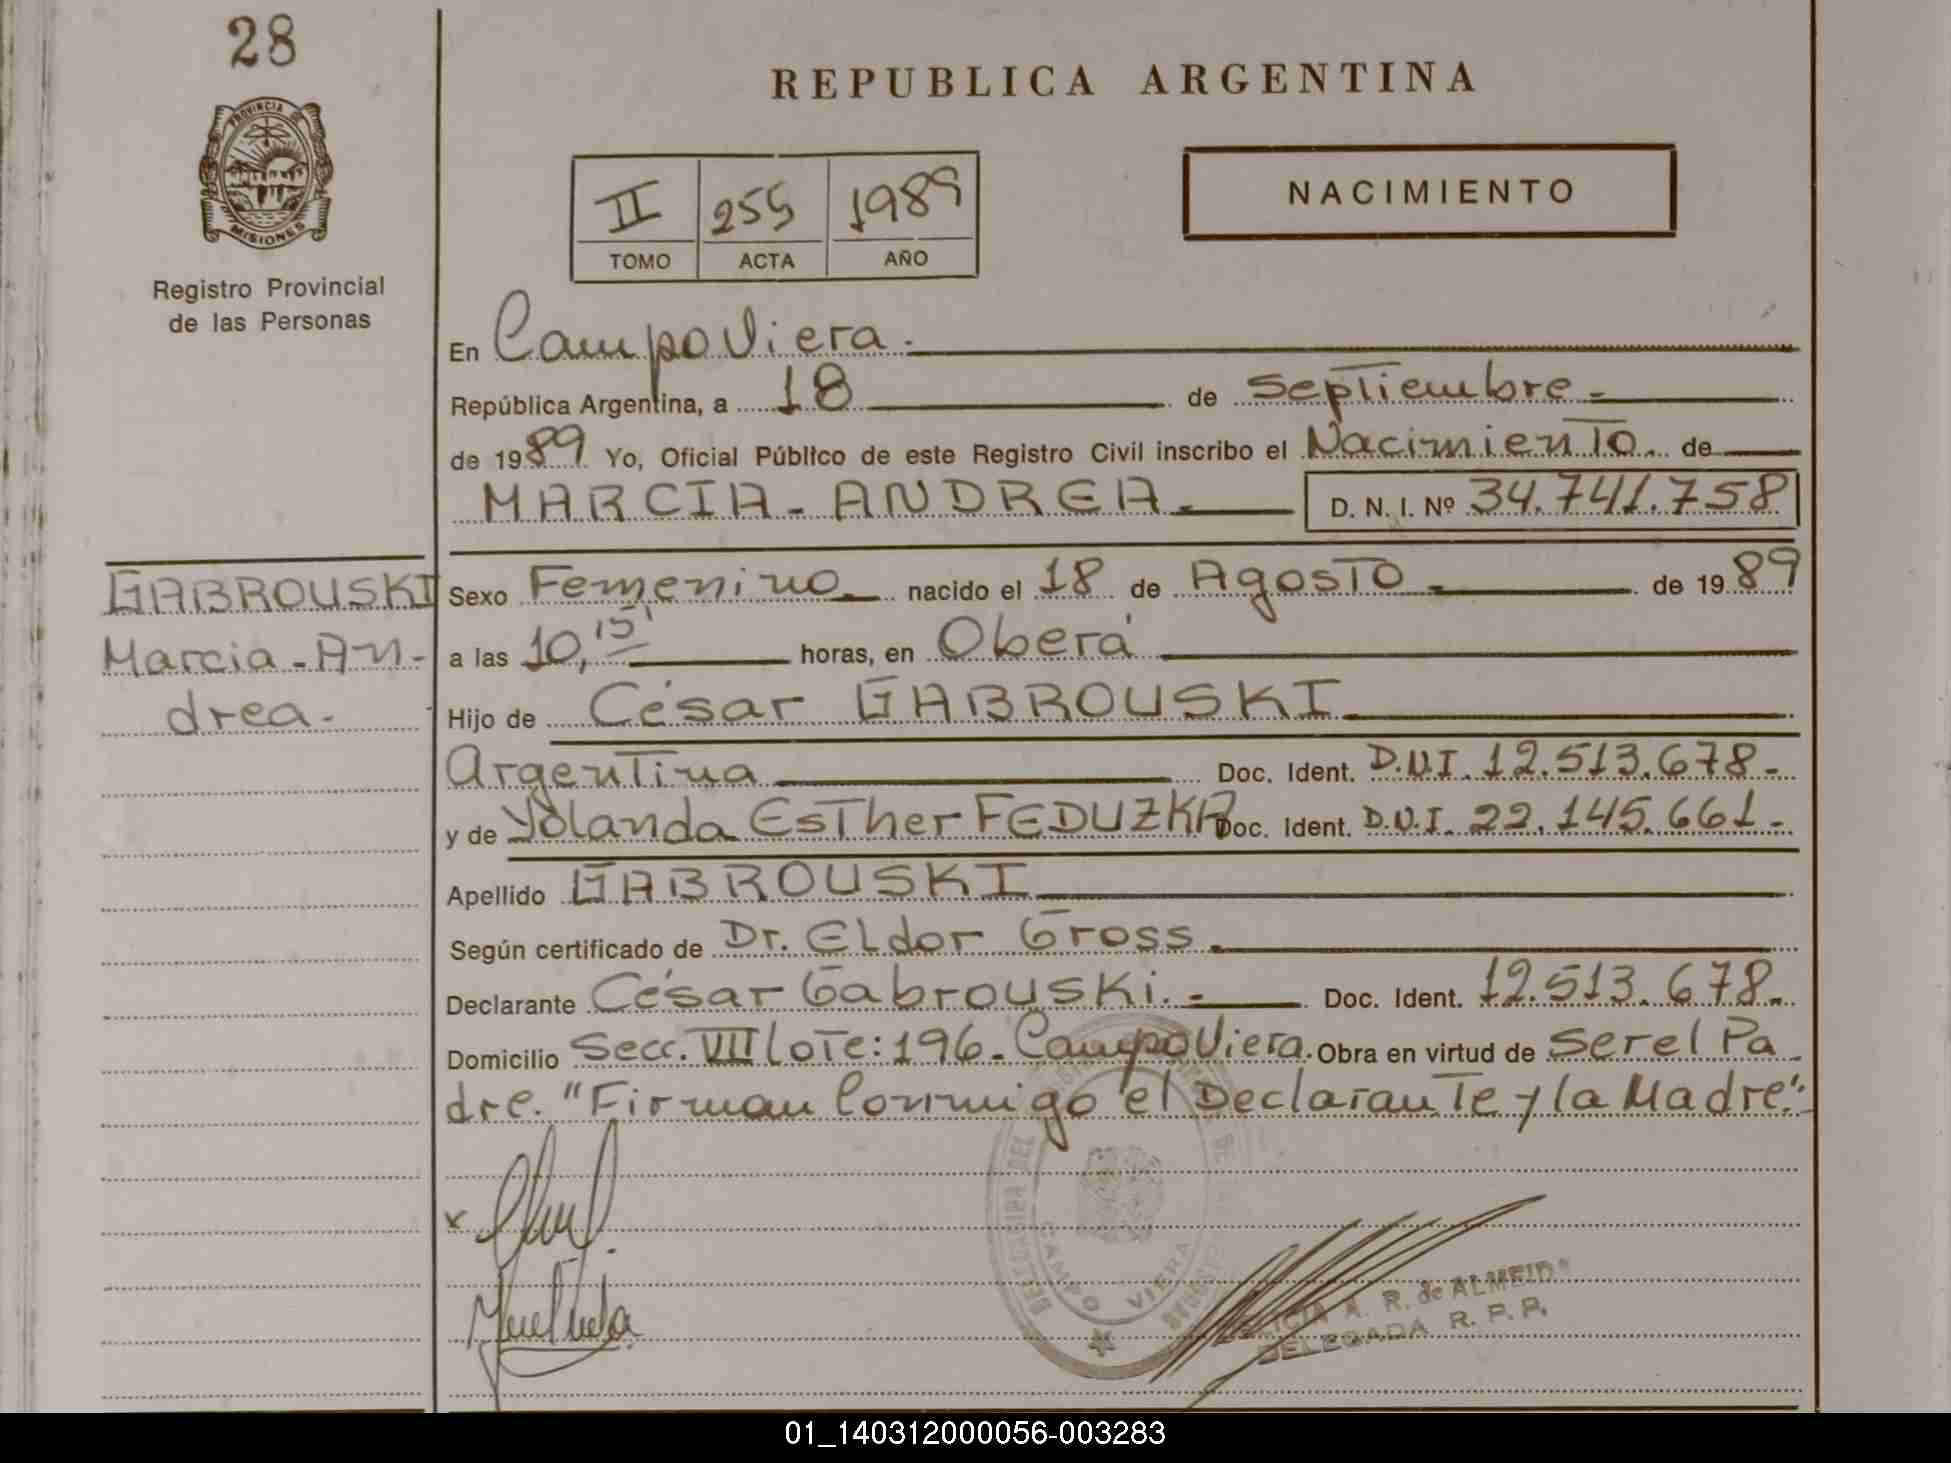 28
PROVINCIA DE
MISIONES
Registro Provincial
de las Personas
REPUBLICA ARGENTINA
II 255 1989
TOMO ACTA AÑO
NACIMIENTO
En Campo Viera.
República Argentina, a 18 de Septiembre
de 1989 Yo, Oficial Público de este Registro Civil inscribo el Nacimiento de
MARCIA - ANDREA D. N. I. Nº 34.741.758
GABROUSKI
Marcia - An-
drea.
Sexo Femenino nacido el 18 de Agosto de 1989
a las 10,15' horas, en Oberá
Hijo de César GABROUSKI
Argentina Doc. Ident. D.N.I. 12.513.678-
y de Yolanda Esther FEDUZKA Doc. Ident. D.N.I. 22.145.661-
Apellido GABROUSKI
Según certificado de Dr. Eldor Gross
Declarante César Gabrouski. Doc. Ident. 12.513.678-
Domicilio Secc. VIII lote: 196- Campo Viera. Obra en virtud de ser el Pa-
dre. "Firman Conmigo el Declarante y la Madre".
CAMPO VIERA
A. R. de ALMEIDA
DELEGADA R. P. P.
01_140312000056-003283